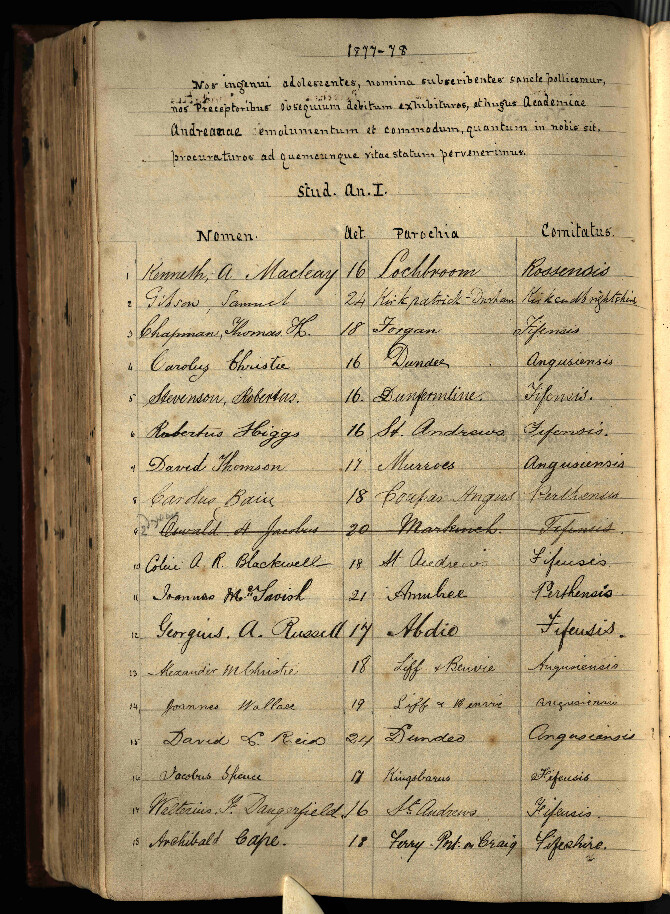 1877-78
Nos ingenui adolescentes, nomina subscribentes sancte pollicemur,
nos Preceptoribus obsequium debitum exhibituros, et hujus Academiae
Andreanae emolumentum et commodum, quantum in nobis sit,
procuraturos ad quemcunque vitae statum pervenerimus.
Stud. An. I.
Nomen. Aet. Parochia Comitatus.
1 Kenneth, A Macleay 16 Lochbroom Rossensis
2 Gibson, Samuel 24 Kirkpatrick-Durham Kirkcudbrightshire
3 Chapman, Thomas H. 18 Forgan Fifensis
4 Carolus Christie 16 Dundee Angusiensis
5 Stevenson, Robertus. 16 Dunfermline. Fifensis.
6 Robertus Higgs 16 St. Andrews Fifensis.
7 David Thomson 17 Murroes Angusiensis
8 Carolus Bain 18 Coupar Angus Perthensis
9 Oswald H Jacobus 20 Markinch Fifensis
10 Colin A R. Blackwell 18 St Andrews Fifensis
11 Joannes McTavish 21 Perthensis
12 Georgius. A. Russell 17 Abdie Fifensis.
13 Alexander M Christie 18 Liff & Benvie Angusiensis
14 Joannes Wallace 19 Liff & Benvie Angusiensis
15 David L Reid 24 Dundee Angusiensis
16 Jacobus Spence 17 Kingsbarns Fifensis
17 F. Dangerfield. 16 St. Andrews Fifensis.
18 Archibald Cape. 18 Ferry-Port-on-Craig Fifeshire.